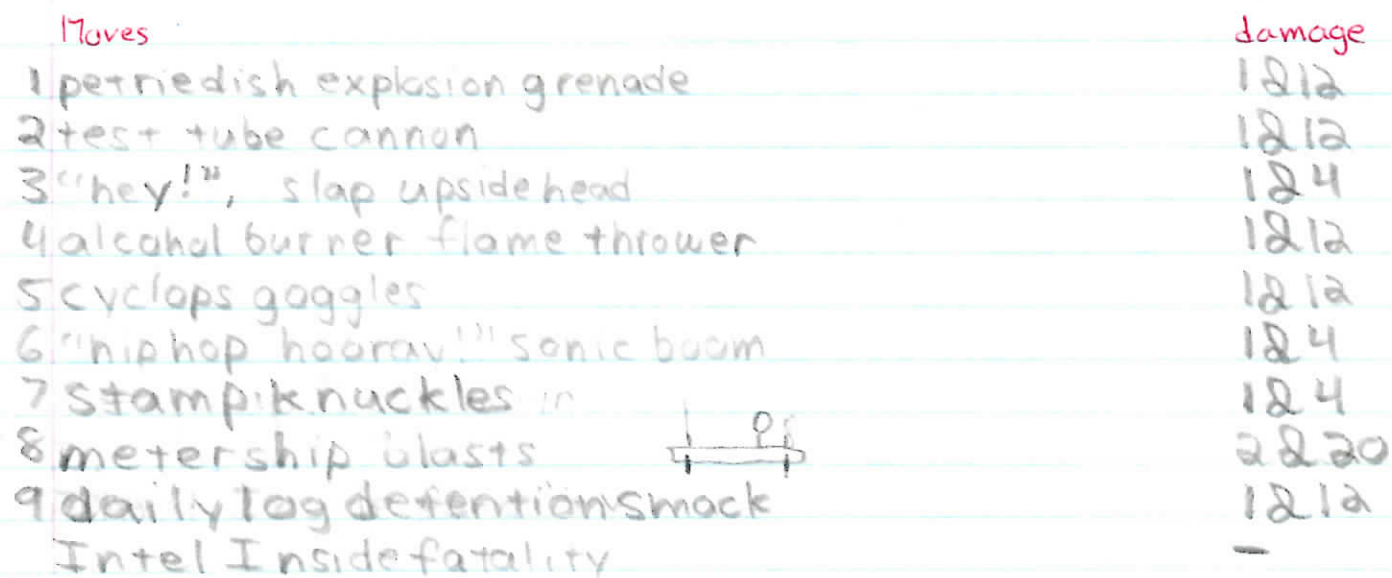 Moves damage
1 petriedish explosion grenade 1d12
2 test tube cannon 1d12
3 "hey!", slap upside head 1d4
4 alcohol burner flame thrower 1d12
5 cyclops goggles 1d12
6 "hip hop hooray!" sonic boom 1d4
7 stamp knuckles 1d4
8 metership blasts 2d20
9 daily log detention smack 1d12
Intel Inside fatality -